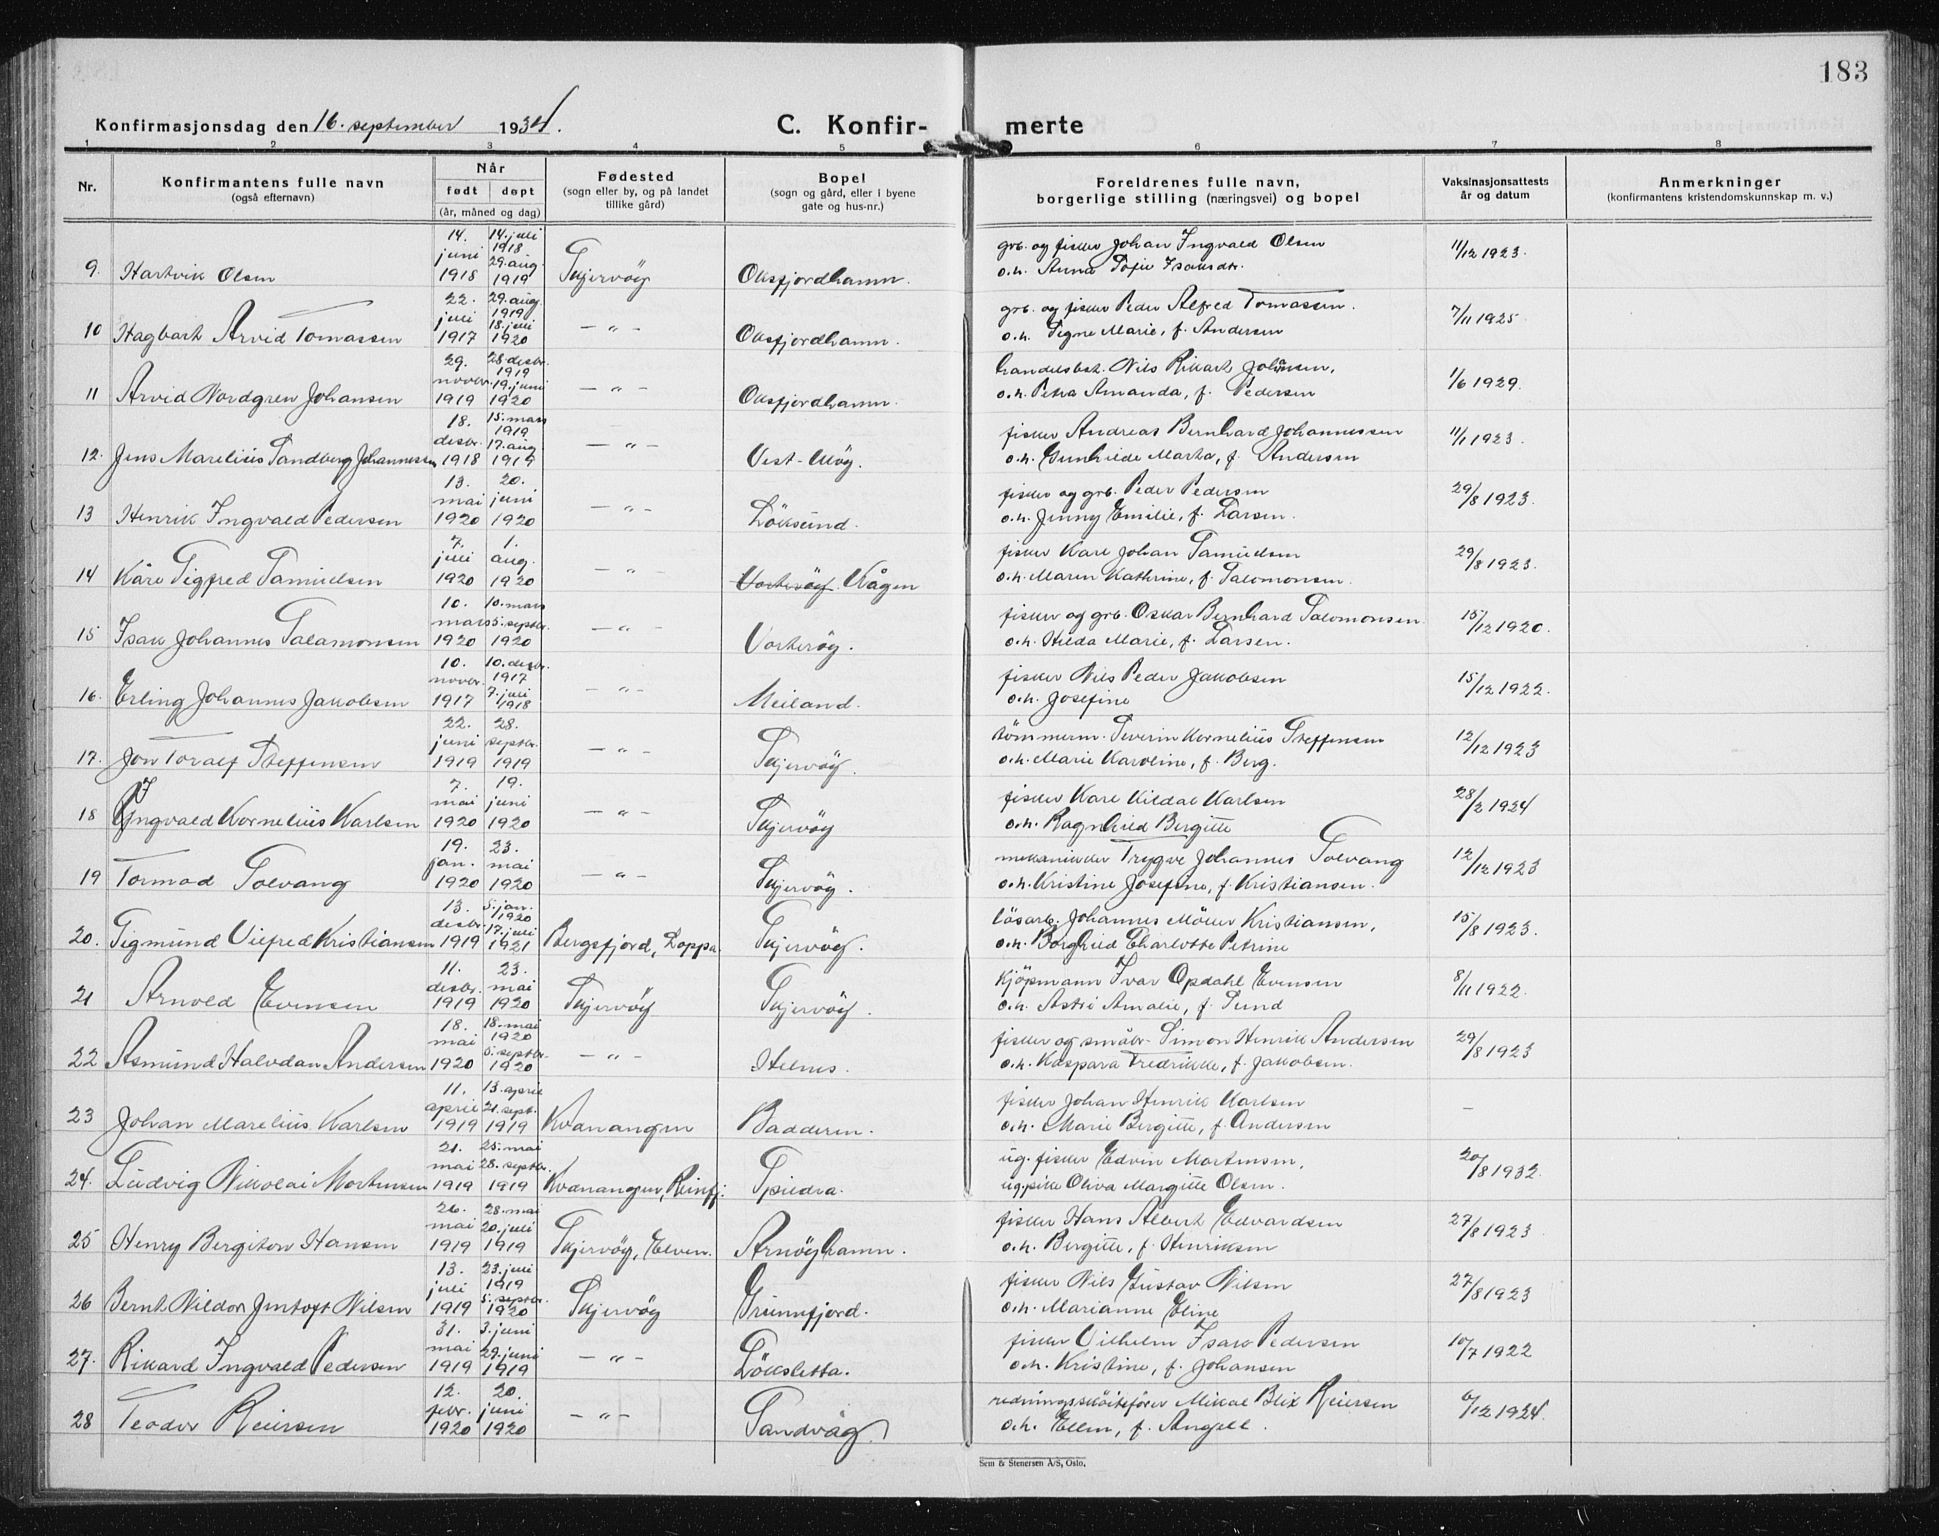 183
Konfirmasjonsdag den 16. september 1934.
C. Konfir- merte
1 2 3 4 5 6 7 8
Nr.
Konfirmantens fulle navn
(også efternavn)
Når
født døpt
(år, måned og dag)
Fødested
(sogn eller by, og på landet
tillike gård)
Bopel
(sogn og gård, eller i byene
gate og hus-nr.)
Foreldrenes fulle navn,
borgerlige stilling (næringsvei) og bopel
Vaksinasjonsattests
år og datum
Anmerkninger
(konfirmantens kristendomskunnskap m. v.)
9. Hartvik Olsen 14. juni 1918 14. juli 1918 29. aug. 1919 Skjervöy Oksfjordhamn. grb. og fisker Johan Ingvald Olsen o.h. Anna Sofie Isaksdr. 11/12 1923.
10 Hagbart Arvid Tomassen 22. juli 1917 29. aug. 1919 18. juli 1920 — " — Oksfjordhamn. grb. og fisker Peder Alfred Tomassen. o.h. Signe Marie, f. Andersen 7/11 1925.
11 Arvid Nordgren Johansen 29. novbr. 1919 28. desbr. 1919 19. juni 1920 — " — Oksfjordhamn. handelsbet. Nils Rikart Johansen, o.h. Petra Amanda, f. Pedersen 1/6 1929.
12. Jens Marelius Sandberg Johannessen 18. desbr. 1918 15. mars 1919 17. aug. 1919 — " — Vest-Uöy. fisker Andreas Bernhard Johannessen o.h. Gunhilde Marta, f. Andersen 11/1 1923.
13 Henrik Ingvald Pedersen 13. mai 1920 20. juni 1920 — " — Löksund. fisker og grb. Peder Pedersen o.h. Jenny Emilie, f. Larsen. 29/8 1923.
14 Kåre Sigfred Samuelsen 7. juli 1920 1. aug. 1920 — " — Vorteröy. Kågen fisker Kare Johan Samuelsen o.h. Maren Kathrine, f. Salomonsen. 29/8 1923.
15 Isak Johannes Salamonsen 10. mars 1920 10. mars 5. septbr. 1920 — " — Vorteröy. fisker og grb. Oskar Bernhard Salomonsen o.h. Hilda Marie, f. Larsen. 15/12 1920.
16. Erling Johannes Jakobsen 10. novbr. 1917 10. desbr. 1917 7. juli 1918 — " — Meiland. fisker Nils Peder Jakobsen o.h. Josefine 15/12 1922.
17. Jon Toralf Steffensen 22. juni 1919 28. septbr. 1919 — " — Skjervöy. tömmerm. Severin Kornelius Steffensen o.h. Marie Karoline, f. Berg. 12/12 1923
18 Ingvald Kornelius Karlsen 7. mai 1920 19. juni 1920 — " — Skjervöy fisker Kare Kildal Karlsen o.h. Ragnhild Bergitte 28/2 1924
19 Tormod Solvang 19. jan. 1920 23. mai 1920 — " — Skjervöy. mekaniker Trygve Johannes Solvang o.h. Kristine Josefine, f. Kristiansen. 12/12 1923
20. Sigmund Vilfred Kristiansen 13. desbr. 1919 5. jan. 1920 17. juli 1921 Bergsfjord, Loppa. Skjervöy. lösarb. Johannes Möller Kristiansen, o.h. Borghild Charlotte Petrine 15/8 1923.
21 Arnold Evensen 11. desbr. 1919 23. mai 1920 Skjervöy Skjervöy. Kjöpmann Ivar Opdahl Evensen o.h. Astri Amalie, f. Sund 8/11 1922.
22 Asmund Halvdan Andersen 18. mai 1920 18. mai 1920 5. septbr. 1920 — " — Helnes. fisker og småbr. Simon Henrik Andersen o.h. Kaspara Fredrikke, f. Jakobsen. 29/8 1923
23 Johan Marelius Karlsen 11. april 1919 13. april 21. sept. 1919 Kvænangen Badderen. fisker Johan Henrik Karlsen o.h. Marie Bergitte, f. Andersen —
24. Ludvig Nikolai Mortensen 21. mai 1919 25. mai 28. septbr. 1919 Kvænangen, Reinfj: Spildra. ug. fisker Edvin Mortensen, ug. pike Oliva Margitte Olsen. 20/8 1932.
25 Henry Bergiton Hansen 26. mai 1919 28. mai 20. juli 1919 Skjervöy, Elven. Arnöyhamn. fisker Hans Albert Edvardsen o.h. Bergitte, f. Henriksen 27/8 1923
26 Bernt Nildor Jentoft Nilsen 13. juli 1919 23. juli 1919 5. septbr. 1920 Skjervöy Grunnfjord. fisker Nils Gustav Nilsen o.h. Marianne Eline 27/8 1923
27. Rikard Ingvald Pedersen 31. mai 1919 3. juni 29. juni 1919 — " — Lökssletta. fisker Vilhelm Isak Pedersen o.h. Kristine, f. Johansen 10/7 1922
28 Teodor Reiersen 12. febr. 1920 20. juni 1920 — " — Sandvåg. redningsskøitefører Mikal Blix Reiersen o.h. Ellen, f. Angell. 6/12 1924.
Sem & Stenersen A/S, Oslo.